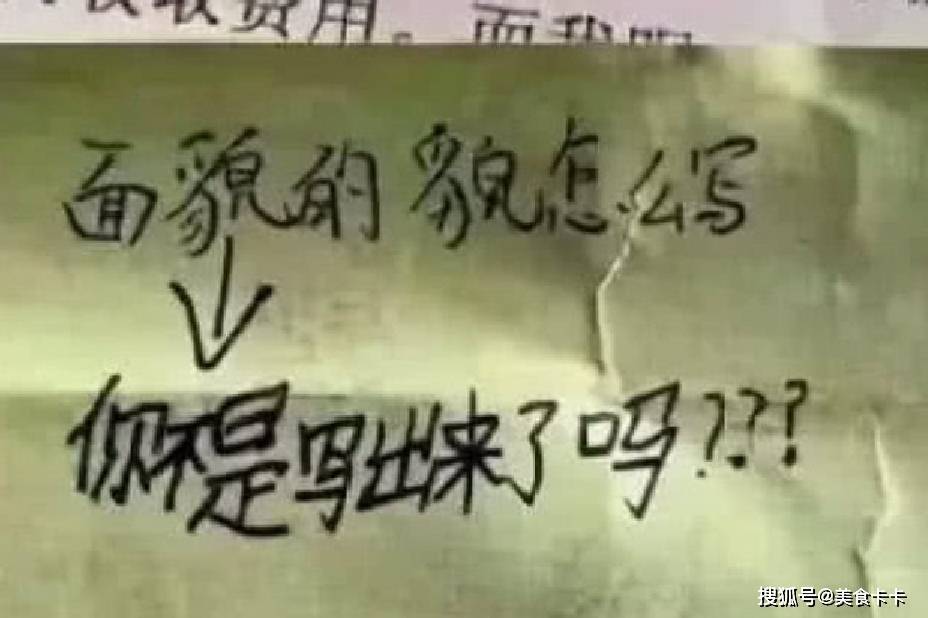 收取费用。而我
面貌的貌怎么写
你不是写出来了吗???
搜狐号@美食卡卡